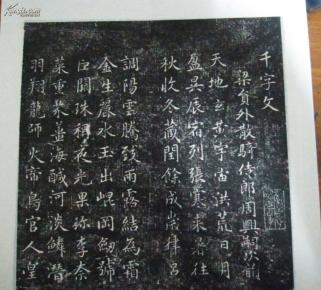 千字文
梁員外散騎侍郎周興嗣次韻
天地玄黃宇宙洪荒日月
盈昃辰宿列張寒来暑往
秋收冬藏閏餘成歲律呂
調陽雲騰致雨露結為霜
金生麗水玉出崐岡劒號
巨闕珠稱夜光果珎李柰
菜重芥薑海鹹河淡鱗潛
羽翔龍師火帝鳥官人皇